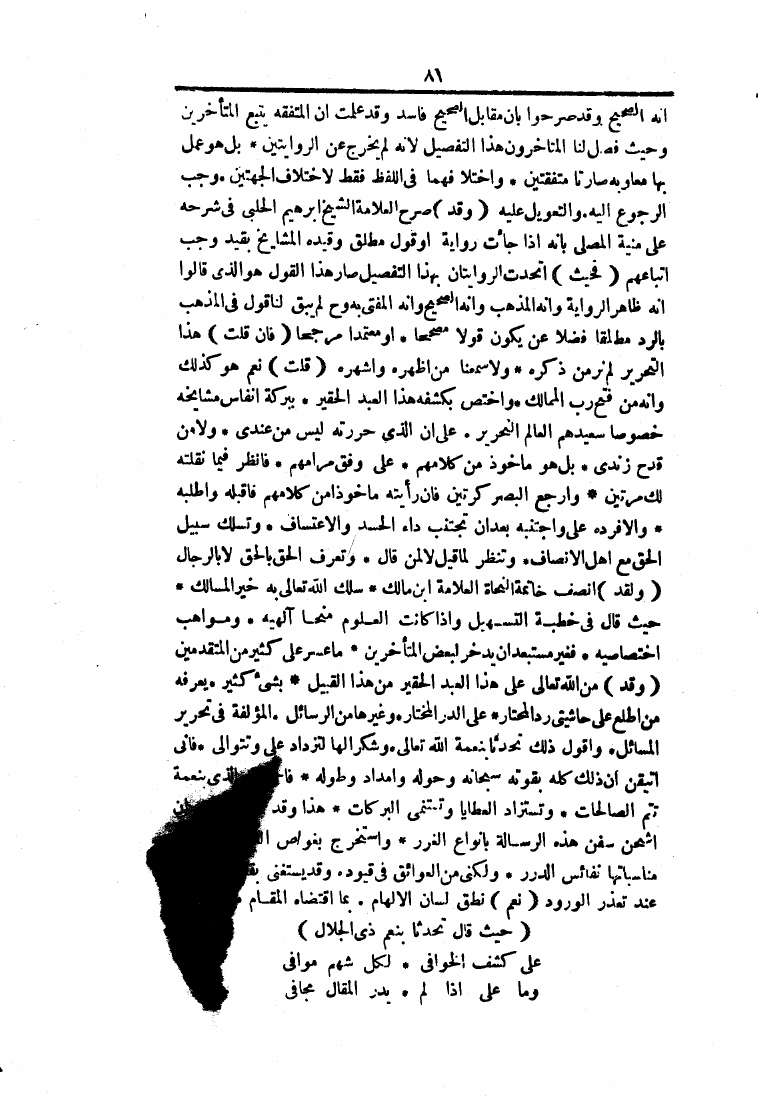 ٨٦
انه الصحيح وقدصرحوا بان مقابل الصحيح فاسد وقد علمت ان المتفقه يتبع المتأخرين
وحيث فصل لنا المتاخرون هذا التفصيل لانه لم يخرج عن الروايتين * بل هو عمل
بها معاوبه صارتا متفقتين * واختلا فهما فى اللفظ فقط لاختلاف الجهتين . وجب
الرجوع اليه . والتعويل عليه ( وقد ) صرح العلامة الشيخ ابرهيم الحلبى فى شرحه
على منية المصلى بانه اذا جأت رواية اوقول مطلق وقيده المشايخ بقيد وجب
اتباعهم ( فحيث ) اتحدت الروايتان بهذا التفصيل صار هذا القول هو الذى قالوا
انه ظاهر الرواية وانه المذهب وانه الصحيح وانه المفتى به وح لم يبق لنا قول فى المذهب
بالرد مطلقا فضلا عن يكون قولا مصححا * او معتمدا مرجحا ( فان قلت ) هذا
التحرير لم نر من ذكره * ولا سمعنا من اظهره واشهره ( قلت ) نعم هو كذلك
وانه من فتح رب الممالك . واختص بكشفه هذا العبد الحقير * ببركة انفاس مشايخه
خصوصا سعيدهم العالم النحرير . على ان الذى حررته ليس من عندى * ولا من
قدح زندى * بل هو ماخوذ من كلامهم * على وفق مرامهم * فانظر فيما نقلته
لك مرتين * وارجع البصر كرتين فان رأيته ماخوذا من كلامهم فاقبله واطلبه
* والافرده على واجتنبه بعدان تجتنب داء الحسد والاعتساف * وتسلك سبيل
الحق مع اهل الانصاف * وتنظر لماقيل لالمن قال * وتعرف الحق بالحق لا بالرجال
( ولقد ) انصف خاتمة النحاة العلامة ابن مالك * سلك الله تعالى به خير المسالك *
حيث قال فى خطبة التسهيل واذا كانت العلوم منحا آلهيه * ومواهب
اختصاصيه * فغير مستبعد ان يدخر لبعض المتأخرين * ماعسر على كثير من المتقدمين
( وقد ) من الله تعالى على هذا العبد الحقير من هذا القبيل * بشئ كثير * يعرفه
من اطلع على حاشيتى رد المحتار * على الدر المختار * وغيرها من الرسائل . المؤلفة فى تحرير
المسائل * واقول ذلك تحدثا بنعمة الله تعالى * وشكرا لها لتزداد على وتتوالى * فانى
اتيقن ان ذلك كله بقوته سبحانه وحوله وامداد وطوله * الذى بنعمة
تتم الصالحات * وتستزاد العطايا وتنمى البركات * هذا وقد
اشحن سفن هذه الرسالة بانواع الغرر * واستخرج بغواص
مناسباتها نفائس الدرر * ولكنى من العوائق فى قيود * وقد يستغنى
عند تعذر الورود ( نعم ) نطق لسان الالهام . بما اقتضاه المقام
( حيث قال تحدثا بنعم ذى الجلال )
على كشف الخوافى * لكل شهم موافى
وما على اذا لم * يدر المقال مجافى